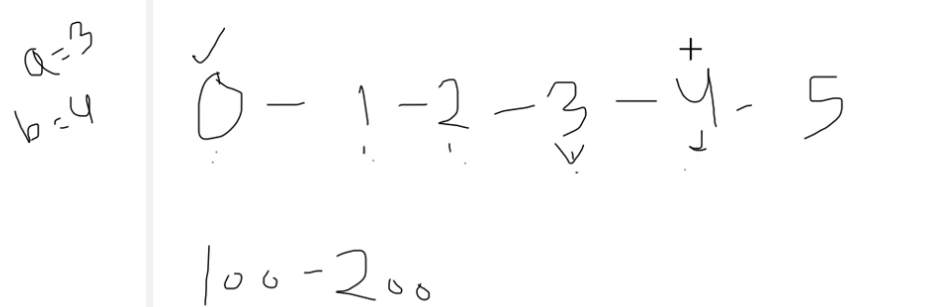 a=3
b=4
+
0 - 1 - 2 - 3 - 4 - 5
100-200